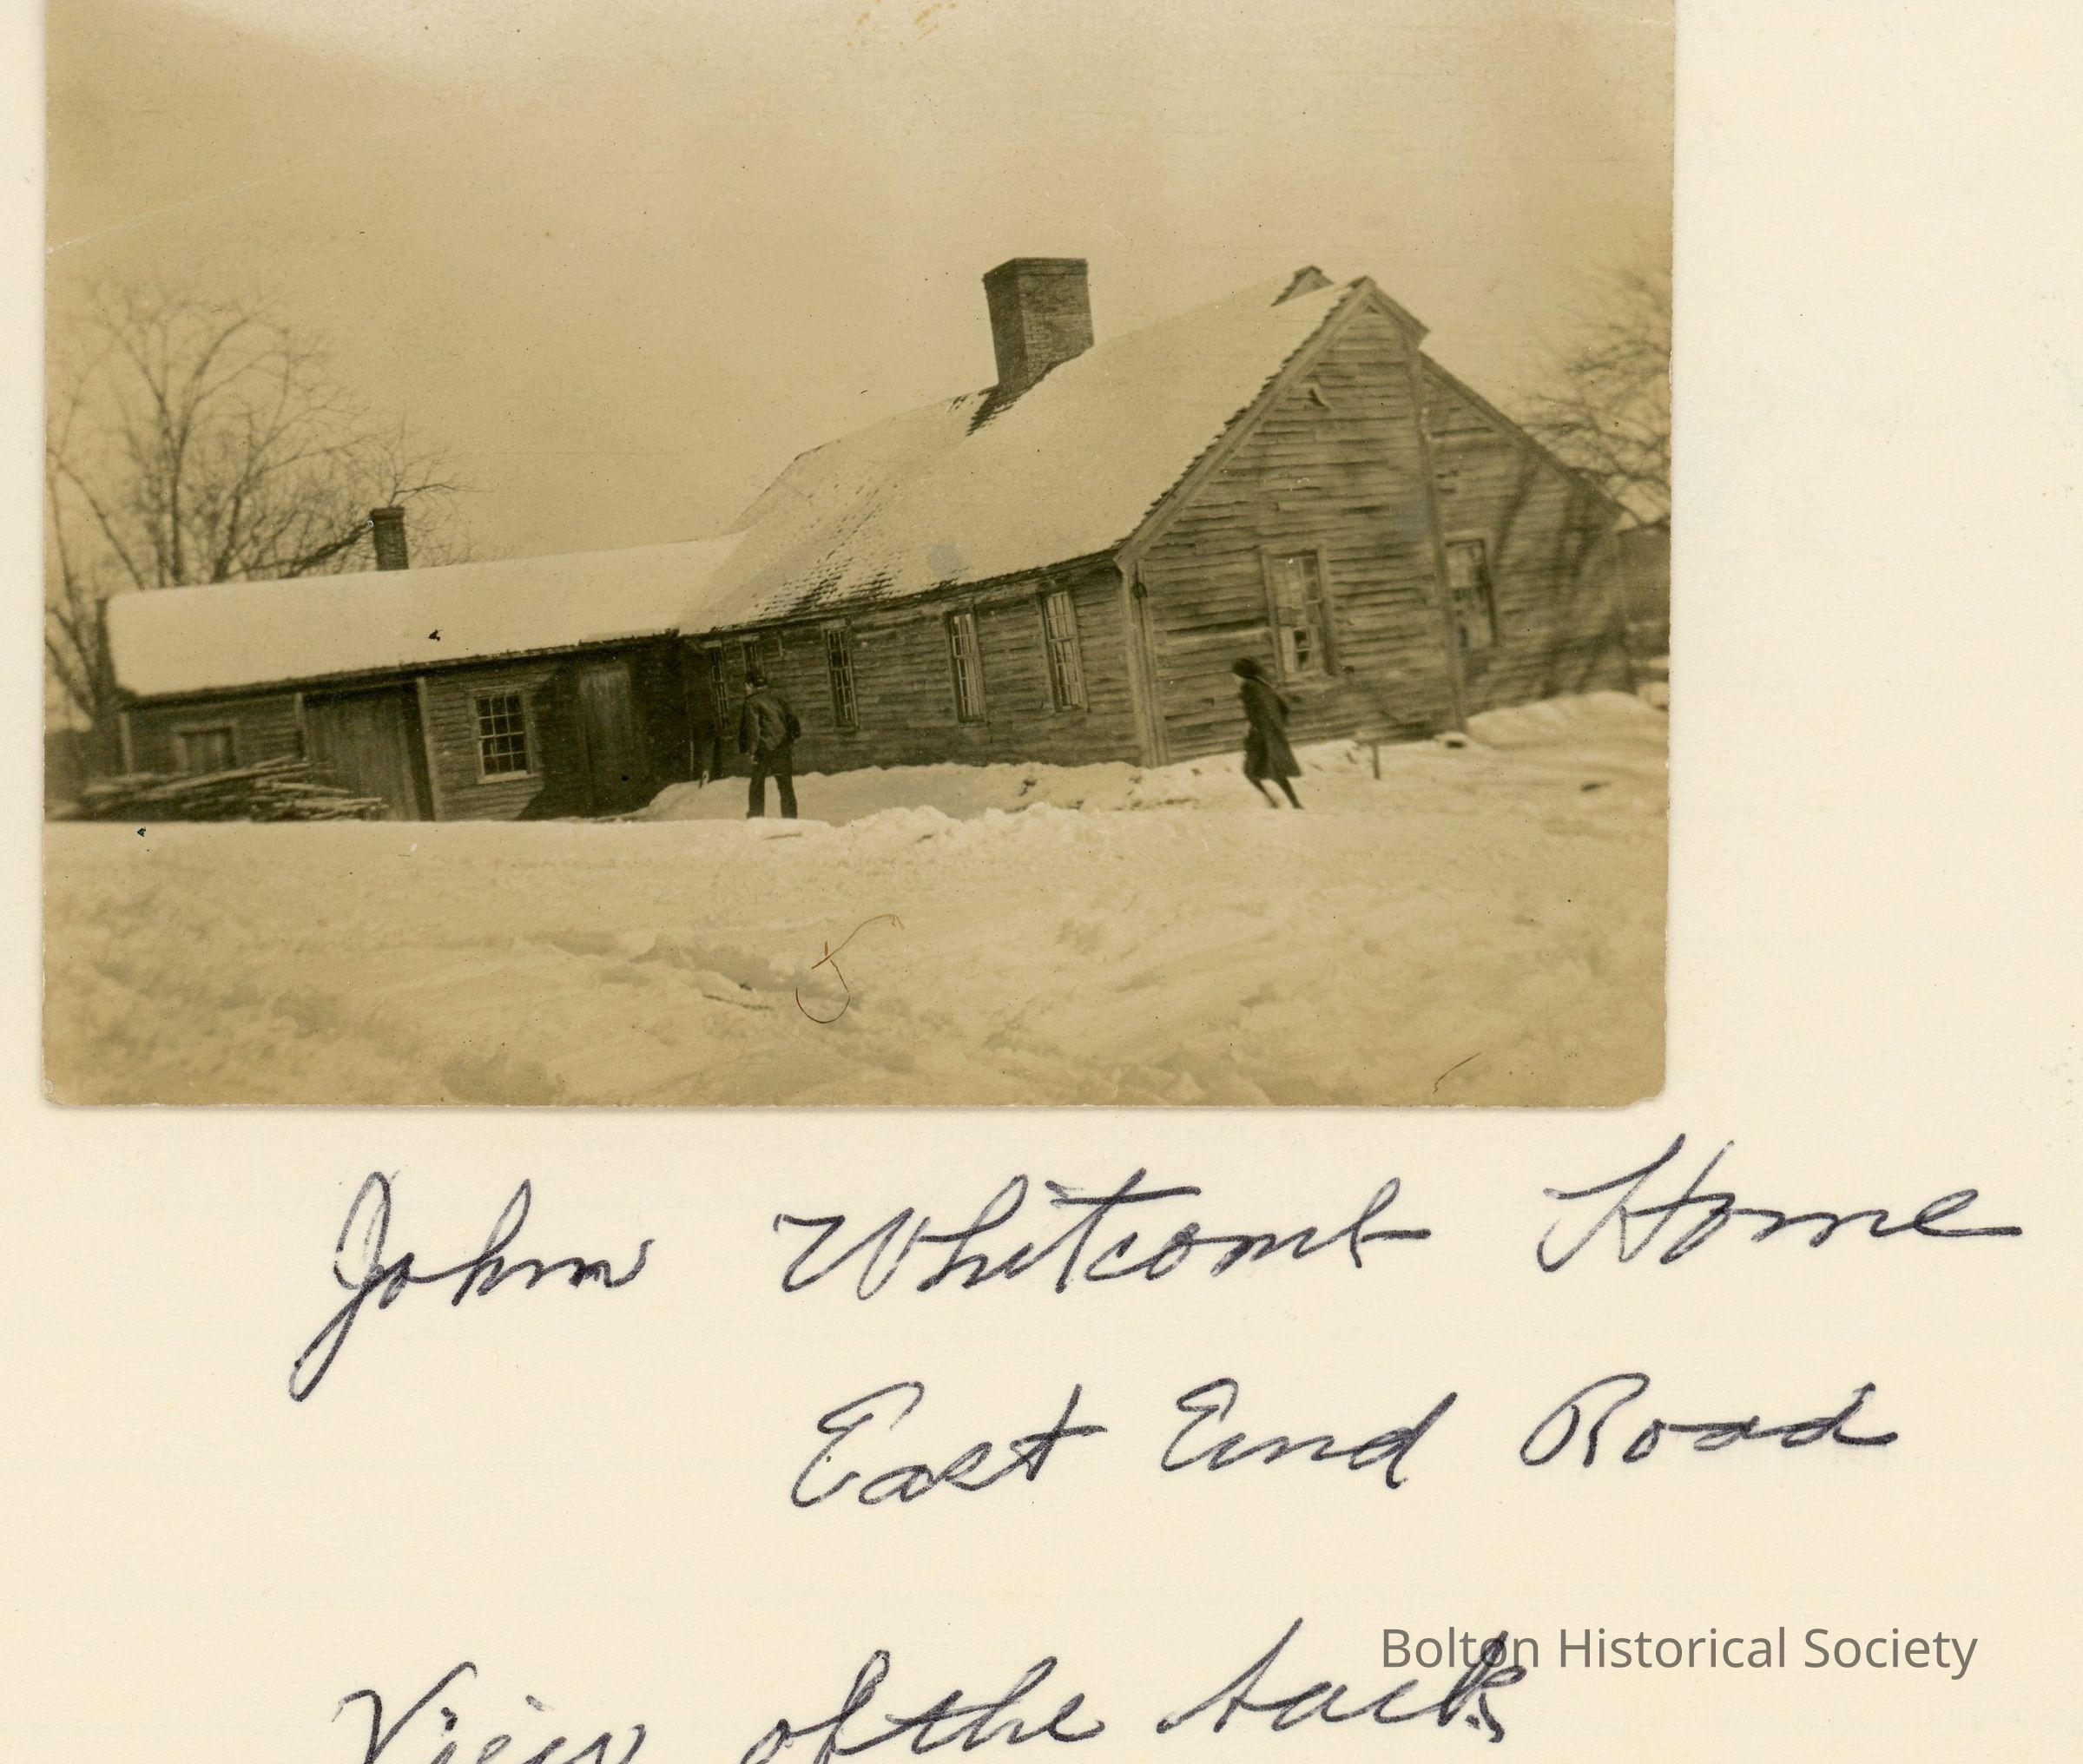 John Whitcomb Home
East End Road
Bolton Historical Society
View of the back